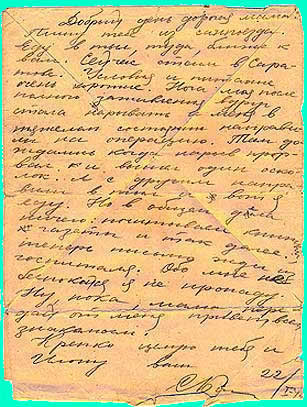 Добрый день дорогая мама.
Пишу тебе из санпоезда.
Еду в тыл, туда, ближе к
вам. Сейчас стоим в Сара-
тове. Условия и питание
очень хорошие. Нога моя после
полного заживления вдруг
стала нарывать и меня в
тяжелом состоянии направи-
ли на операцию. Там до-
ждались когда нарыв прор-
вал. и вынули один оско-
лок. И с другим напра-
вили в тыл. и вот я
еду. Но в общем дела
ничего: почитываем книги,
газеты и так далее.
теперь письма жди из
госпиталя. Обо мне не
беспокойся я не пропаду.
Ну, пока, мама, пере-
дай от меня привет всем
знакомым!
Крепко целую тебя и
ваш
22/